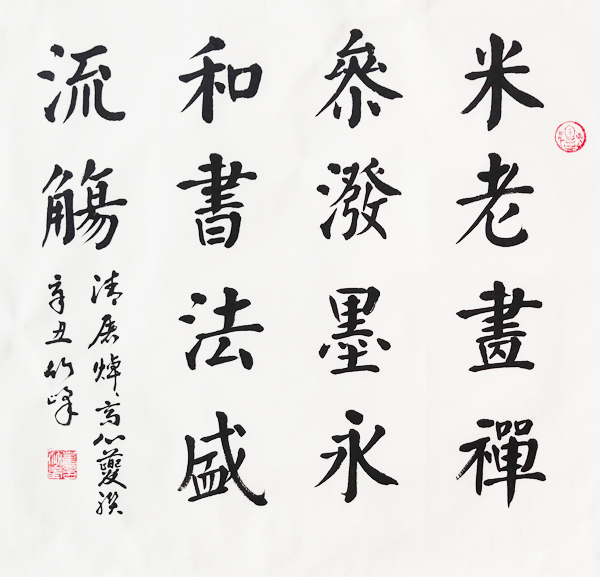 米老畫禪
參潑墨永
和書法盛
流觴
清高心夔联
辛丑竹峰